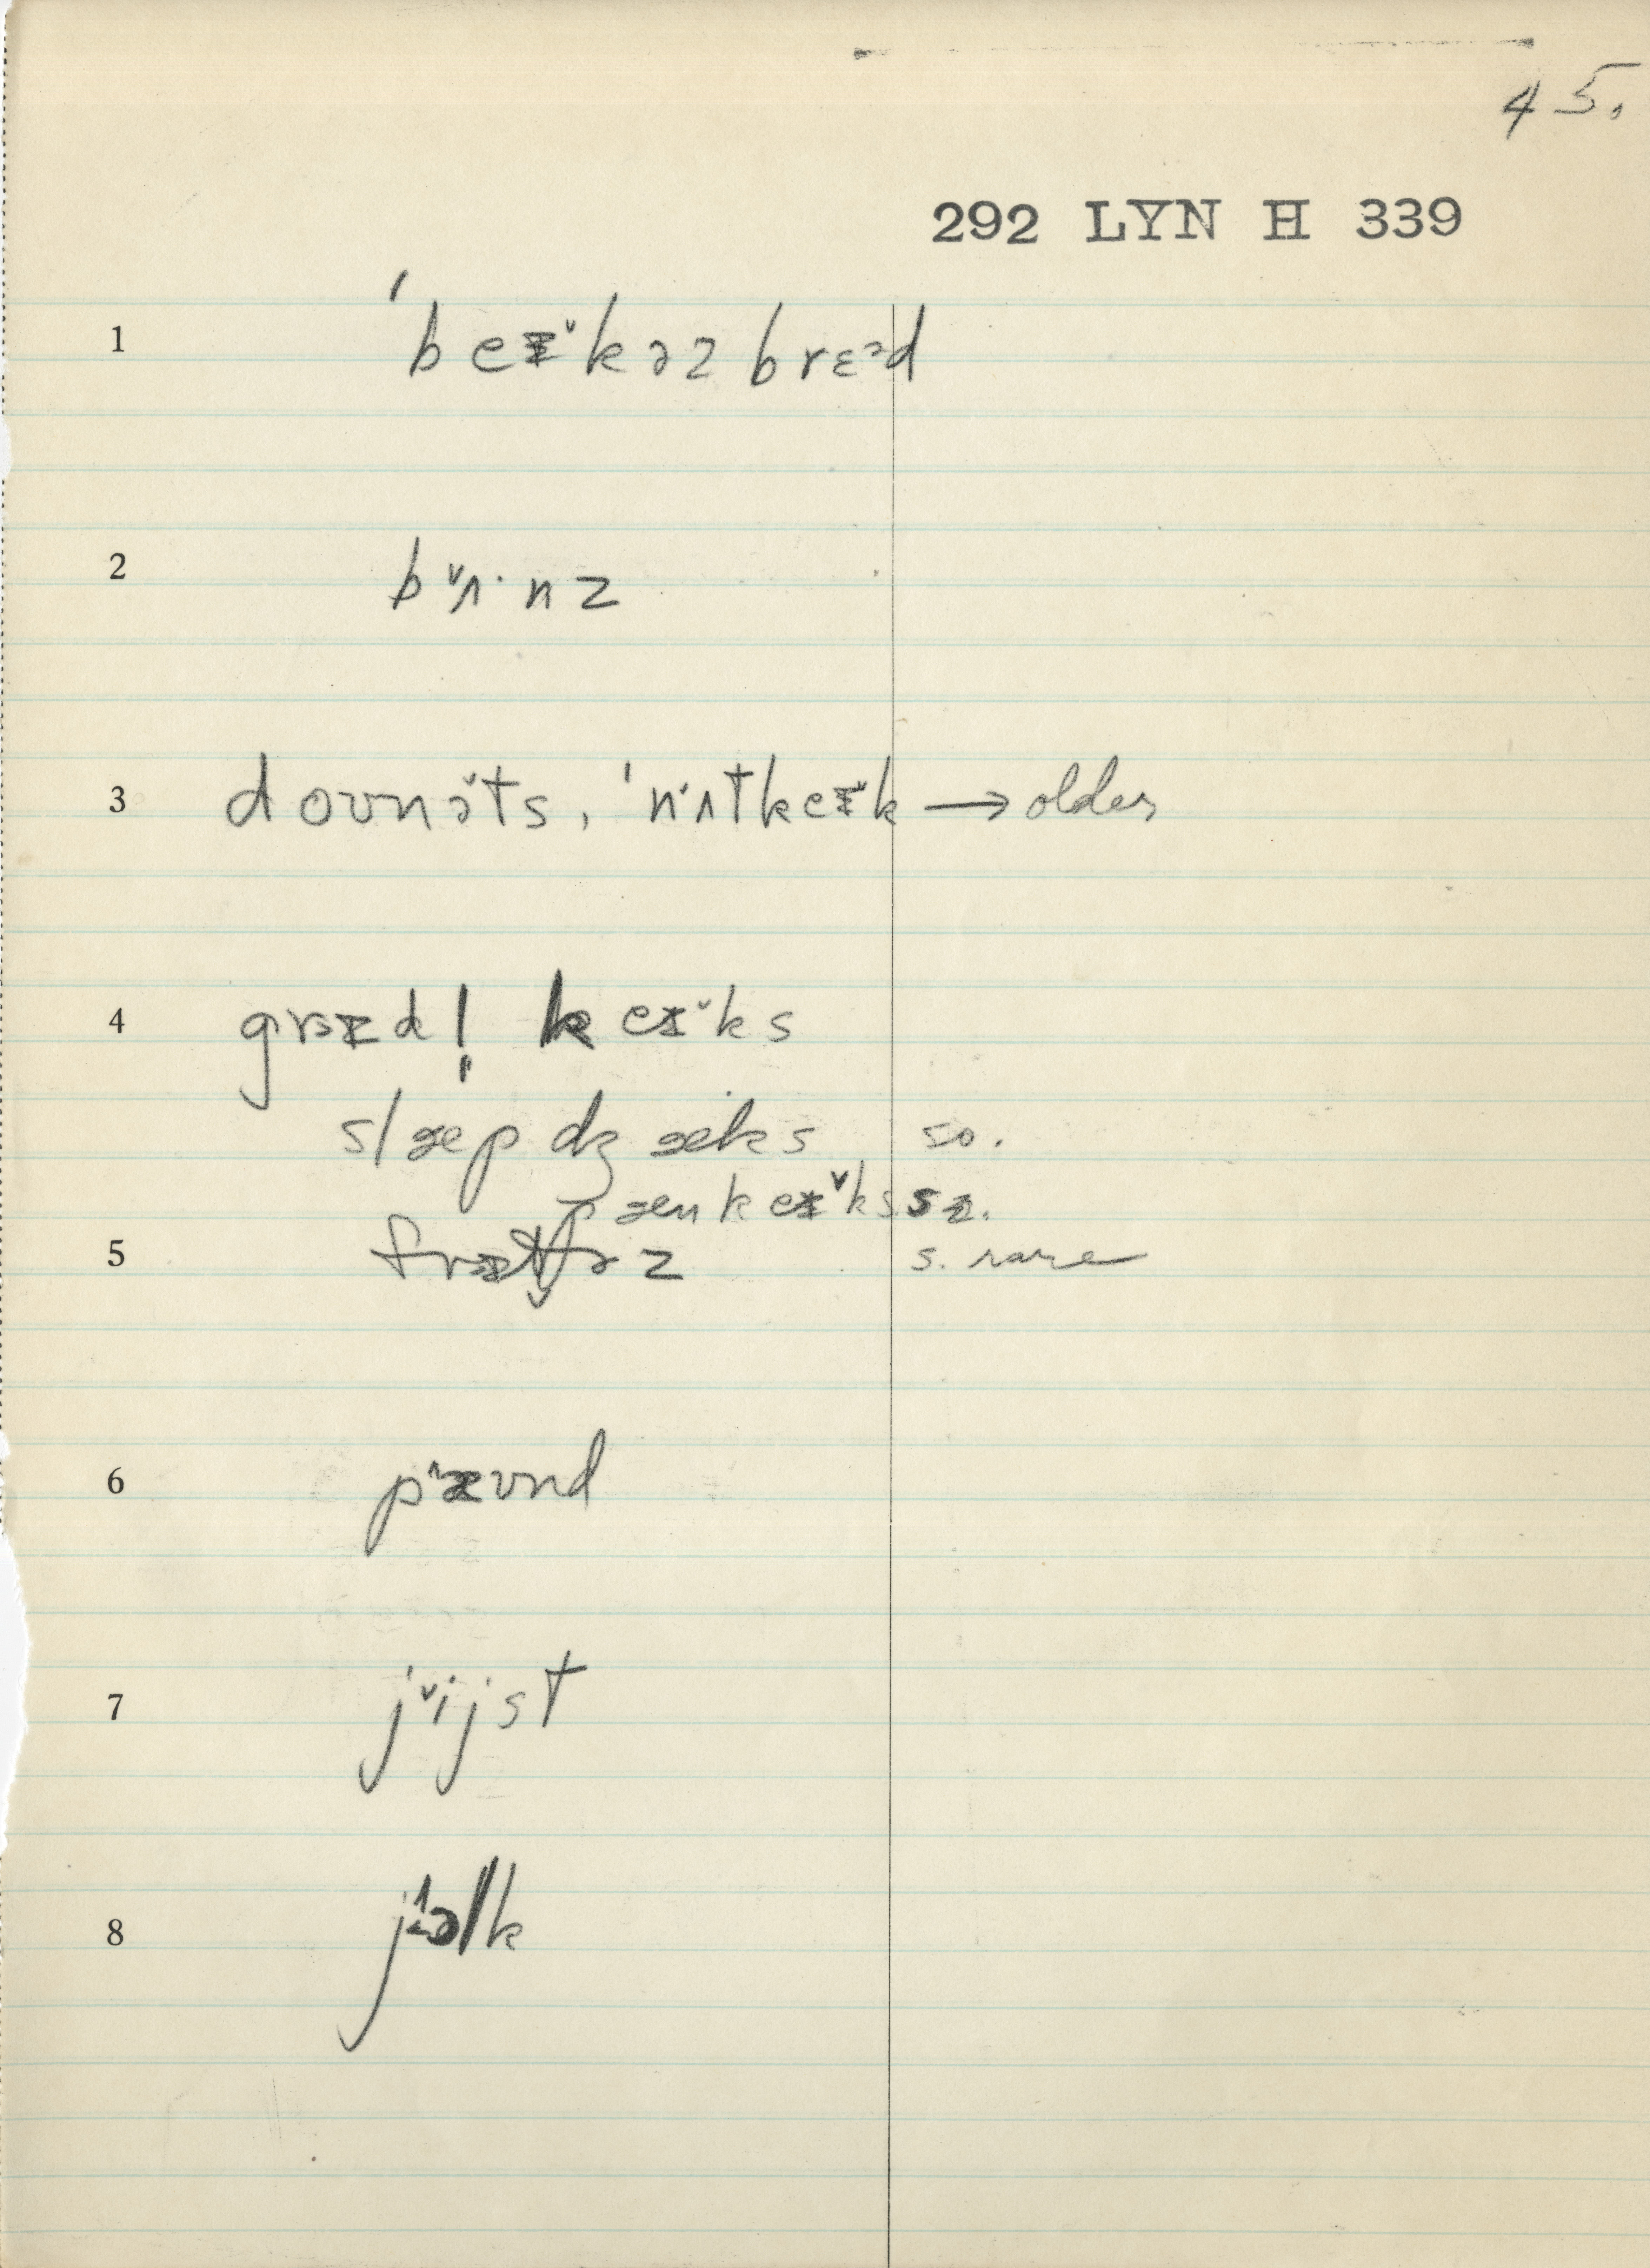 45.
292 LYN H 339
1 ˈbeᵻ˅kəz brɛᵊd
2 b˅ʌ·nz
3 doʊnə̆ts, ˈn˅ʌtkeᵻ˅k → older
4 grɪd! keᵻ˅ks
slæpdʒæks so.
pænkeᵻ˅ks s2.
5 s. rare
6 p˄æʊnd
7 j˅ijst
8 lk